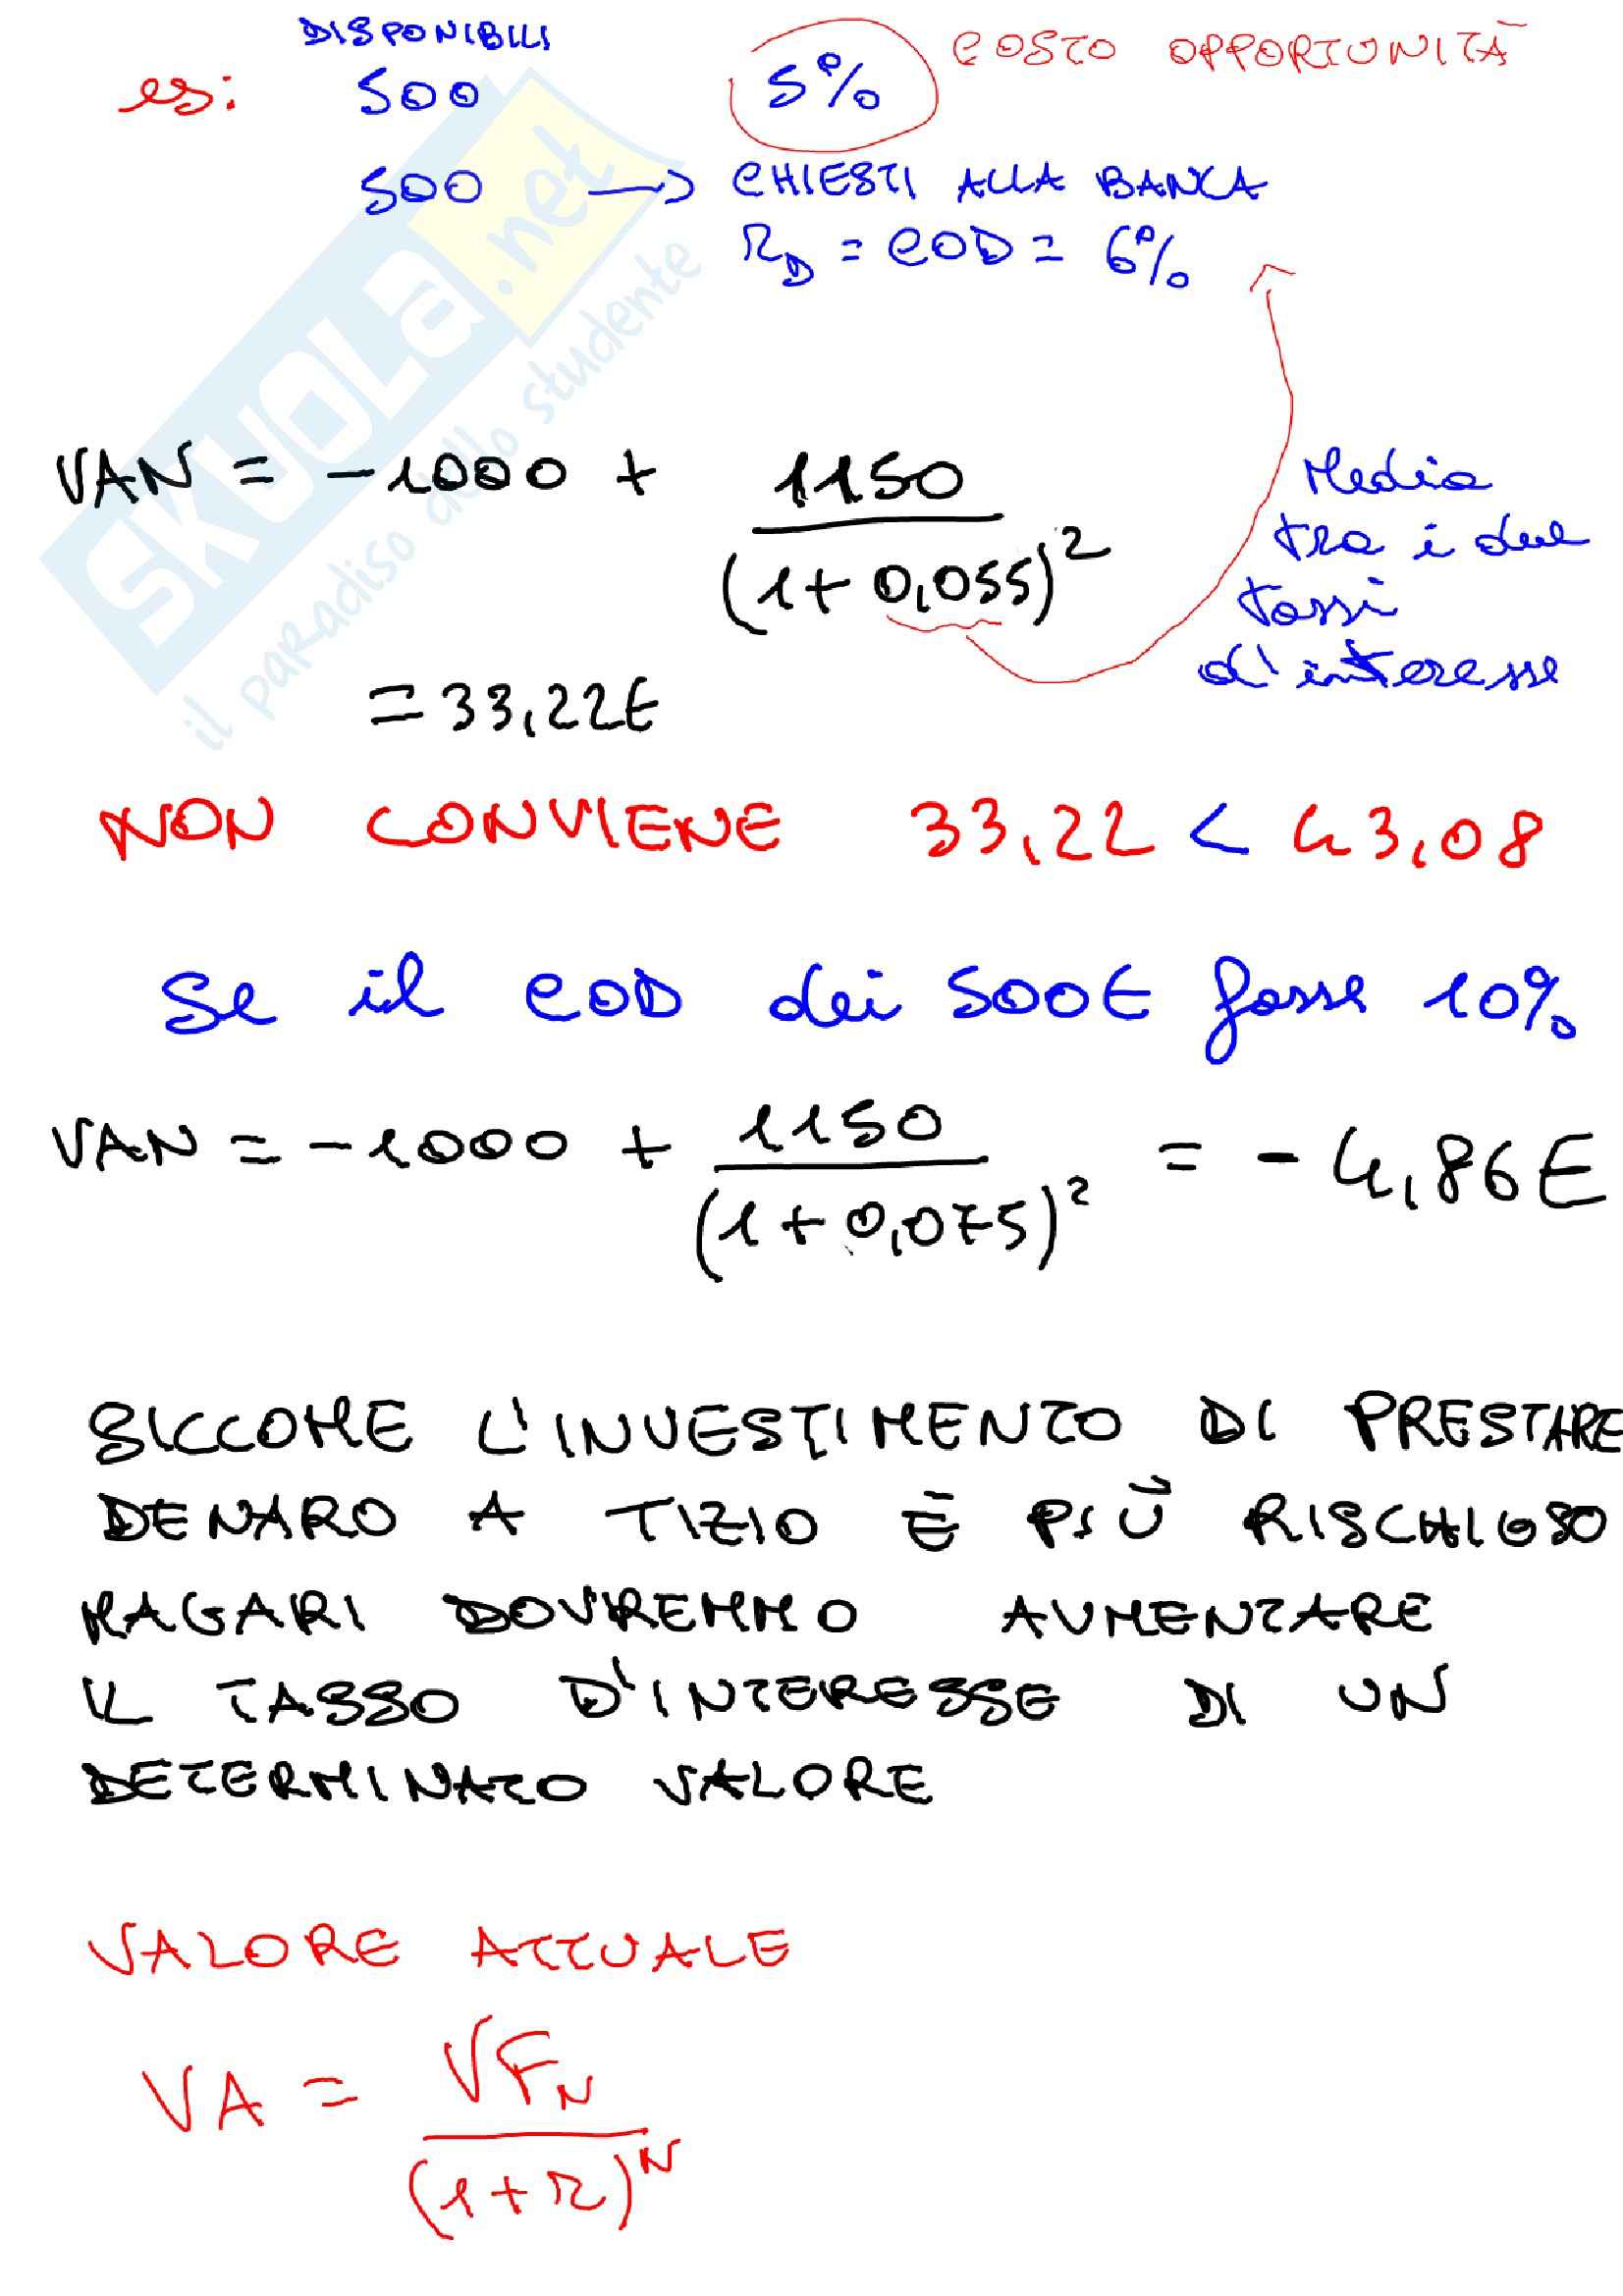 DISPONIBILI
es: 500 5% COSTO OPPORTUNITÀ
500 → CHIESTI ALLA BANCA
r_D = COD = 6%
VAN = -1000 + 1150 / (1+0,055)²
Media
tra i due
tassi
d'interesse
= 33,22€
NON CONVIENE 33,22 < 43,08
Se il COD dei 500€ fosse 10%
VAN = -1000 + 1150 / (1+0,075)² = -4,86€
SICCOME L'INVESTIMENTO DI PRESTARE
DENARO A TIZIO È PIÙ RISCHIOSO
MAGARI DOVREMMO AUMENTARE
IL TASSO D'INTERESSE DI UN
DETERMINATO VALORE
VALORE ATTUALE
VA = VF_N / (1+r)^N
SKUOLA.net
il paradiso dello studente